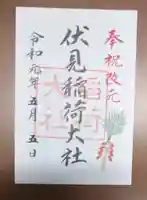 奉祝改元
伏見稲荷大社
令和元年五月五日